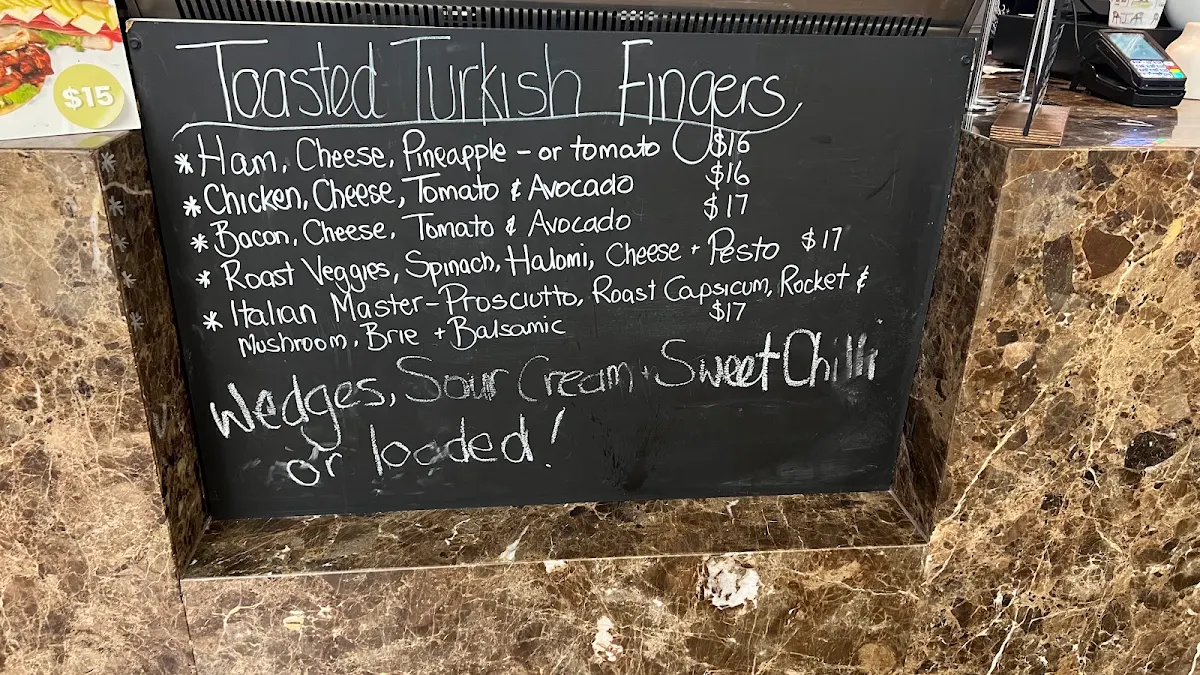 $15
Toasted Turkish Fingers
* Ham, Cheese, Pineapple - or tomato $16
* Chicken, Cheese, Tomato & Avocado $16
* Bacon, Cheese, Tomato & Avocado $17
* Roast Veggies, Spinach, Halomi, Cheese + Pesto $17
* Italian Master - Prosciutto, Roast Capsicum, Rocket &
Mushroom, Brie + Balsamic $17
Wedges, Sour Cream + Sweet Chilli
or loaded!